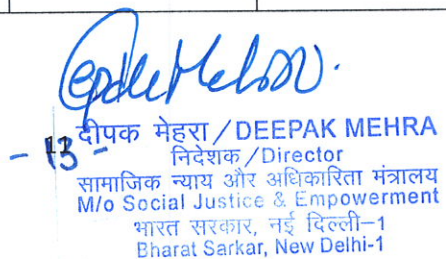 - 13 -
दीपक मेहरा/DEEPAK MEHRA
निदेशक/Director
सामाजिक न्याय और अधिकारिता मंत्रालय
M/o Social Justice & Empowerment
भारत सरकार, नई दिल्ली-1
Bharat Sarkar, New Delhi-1